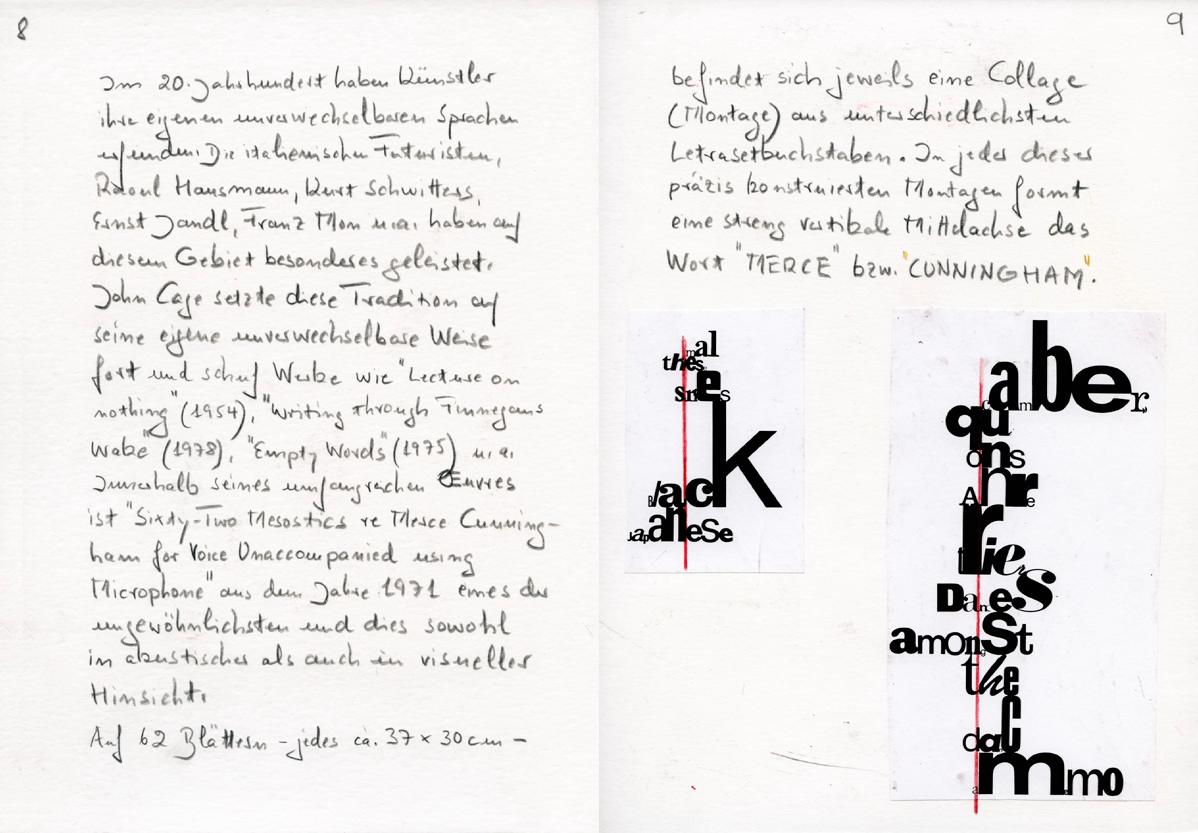 8
Im 20. Jahrhundert haben Künstler
ihre eigenen unverwechselbaren Sprachen
erfunden. Die italienischen Futuristen,
Raoul Hausmann, Kurt Schwitters,
Ernst Jandl, Franz Mon u.a. haben auf
diesem Gebiet besonderes geleistet.
John Cage setzte diese Tradition auf
seine eigene unverwechselbare Weise
fort und schuf Werke wie "Lecture on
nothing" (1954), "Writing through Finnegans
Wake" (1978), "Empty Words" (1975) u.a.
Innerhalb seines umfangreichen Œuvres
ist "Sixty-Two Mesostics re Merce Cunning-
ham for Voice Unaccompanied using
Microphone" aus dem Jahre 1971 eines der
ungewöhnlichsten und dies sowohl
in akustischer als auch in visueller
Hinsicht.
Auf 62 Blättern – jedes ca. 37 x 30 cm –
9
befindet sich jeweils eine Collage
(Montage) aus unterschiedlichsten
Letrasetbuchstaben. In jeder dieser
präzis konstruierten Montagen formt
eine streng vertikale Mittelachse das
Wort "MERCE" bzw. "CUNNINGHAM".
mal
thes
e
k
Black
JapaneSe
aber,
qu
ons
ries
DaneS
amongSt
the
C
dac
mmo